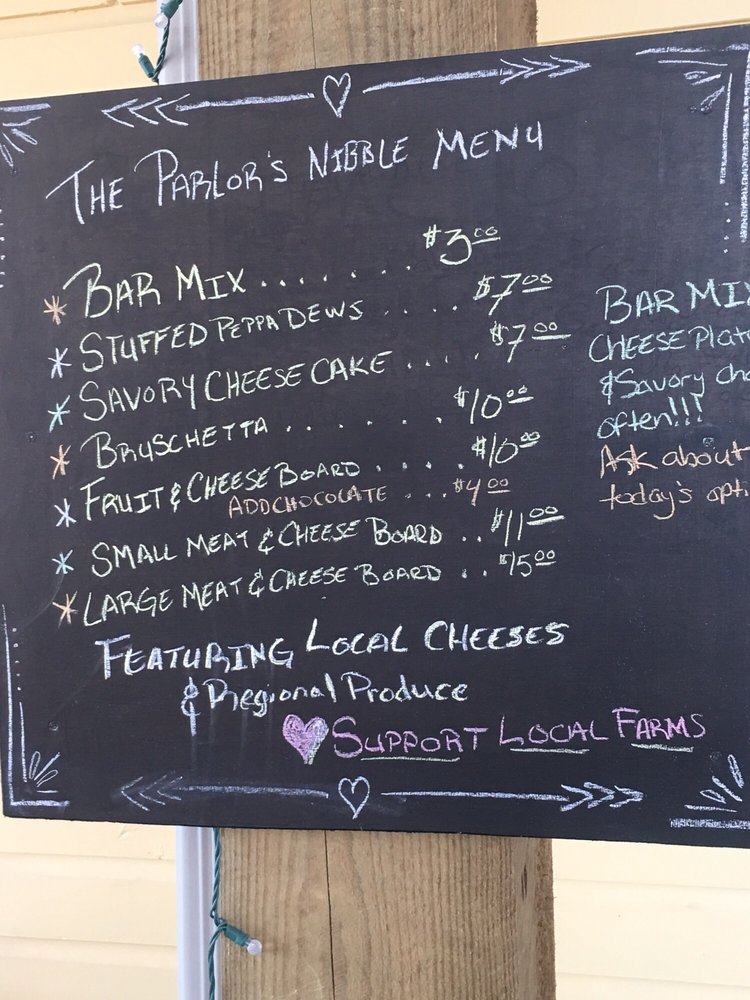 THE PARLOR'S NIBBLE MENU
* BAR MIX ....... $3.00
* STUFFED PEPPADEWS .... $7.00
* SAVORY CHEESE CAKE .... $7.00
* BRUSCHETTA ....... $10.00
* FRUIT & CHEESE BOARD .... $10.00
ADD CHOCOLATE ... $4.00
* SMALL MEAT & CHEESE BOARD .. $11.00
* LARGE MEAT & CHEESE BOARD .. $15.00
FEATURING LOCAL CHEESES
& Regional Produce
SUPPORT LOCAL FARMS
BAR MIX
CHEESE Plat
& Savory Ch
often!!!
Ask about
today's opti